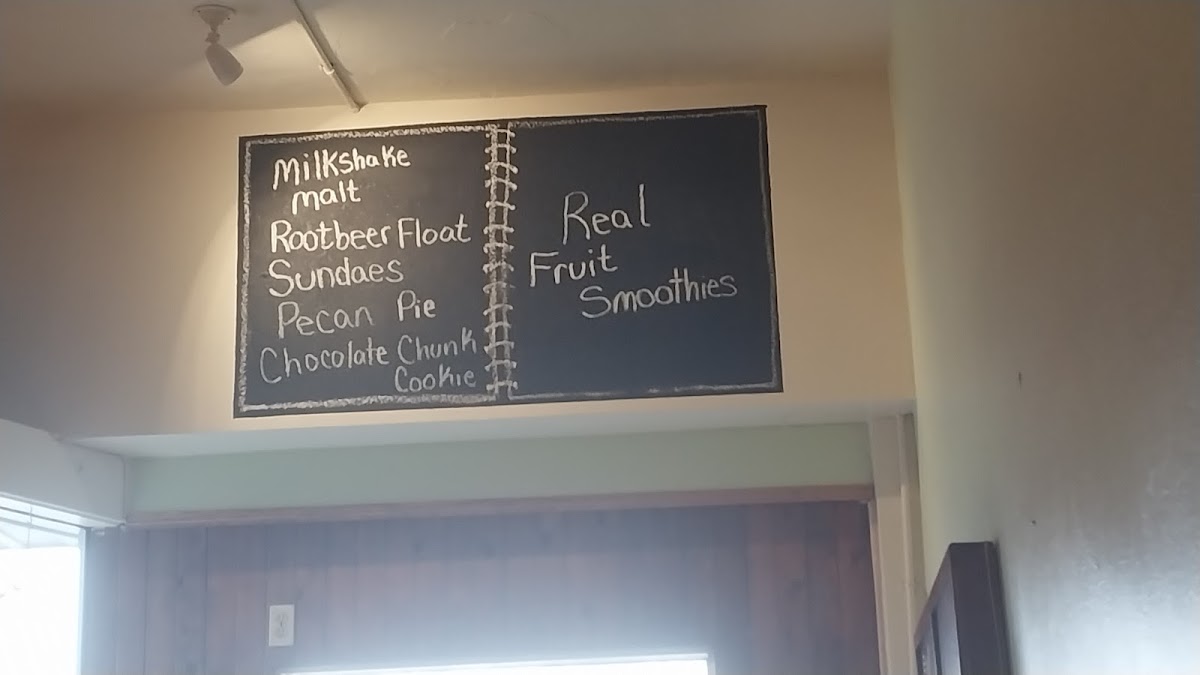 Milkshake
malt
Rootbeer Float
Sundaes
Pecan Pie
Chocolate Chunk
Cookie
Real
Fruit
Smoothies